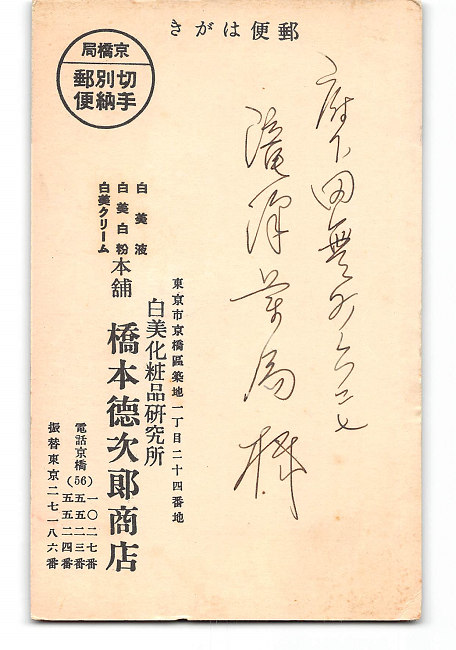 郵便はがき
京橋局
切手別納郵便
府下田無町六三七
滝澤薬局 様
東京市京橋區築地一丁目二十四番地
白美化粧品研究所
白美液
白美白粉
白美クリーム
本舗 橋本德次郎商店
電話京橋(56)一〇二七番
五五二三番
五五二四番
振替東京二七一八六番